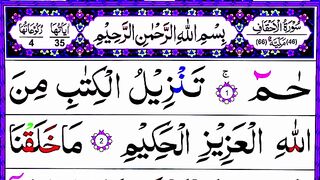 سُوْرَةُ الْاَحْقَافِ
(46) مَكِّيَّةٌ (66)
بِسْمِ اللّٰهِ الرَّحْمٰنِ الرَّحِيْمِ
اٰيَاتُهَا 35
رُكُوْعَاتُهَا 4
حٰمٓ ۚ ١ تَنْزِيْلُ الْكِتٰبِ مِنَ
اللّٰهِ الْعَزِيْزِ الْحَكِيْمِ ٢ مَا خَلَقْنَا